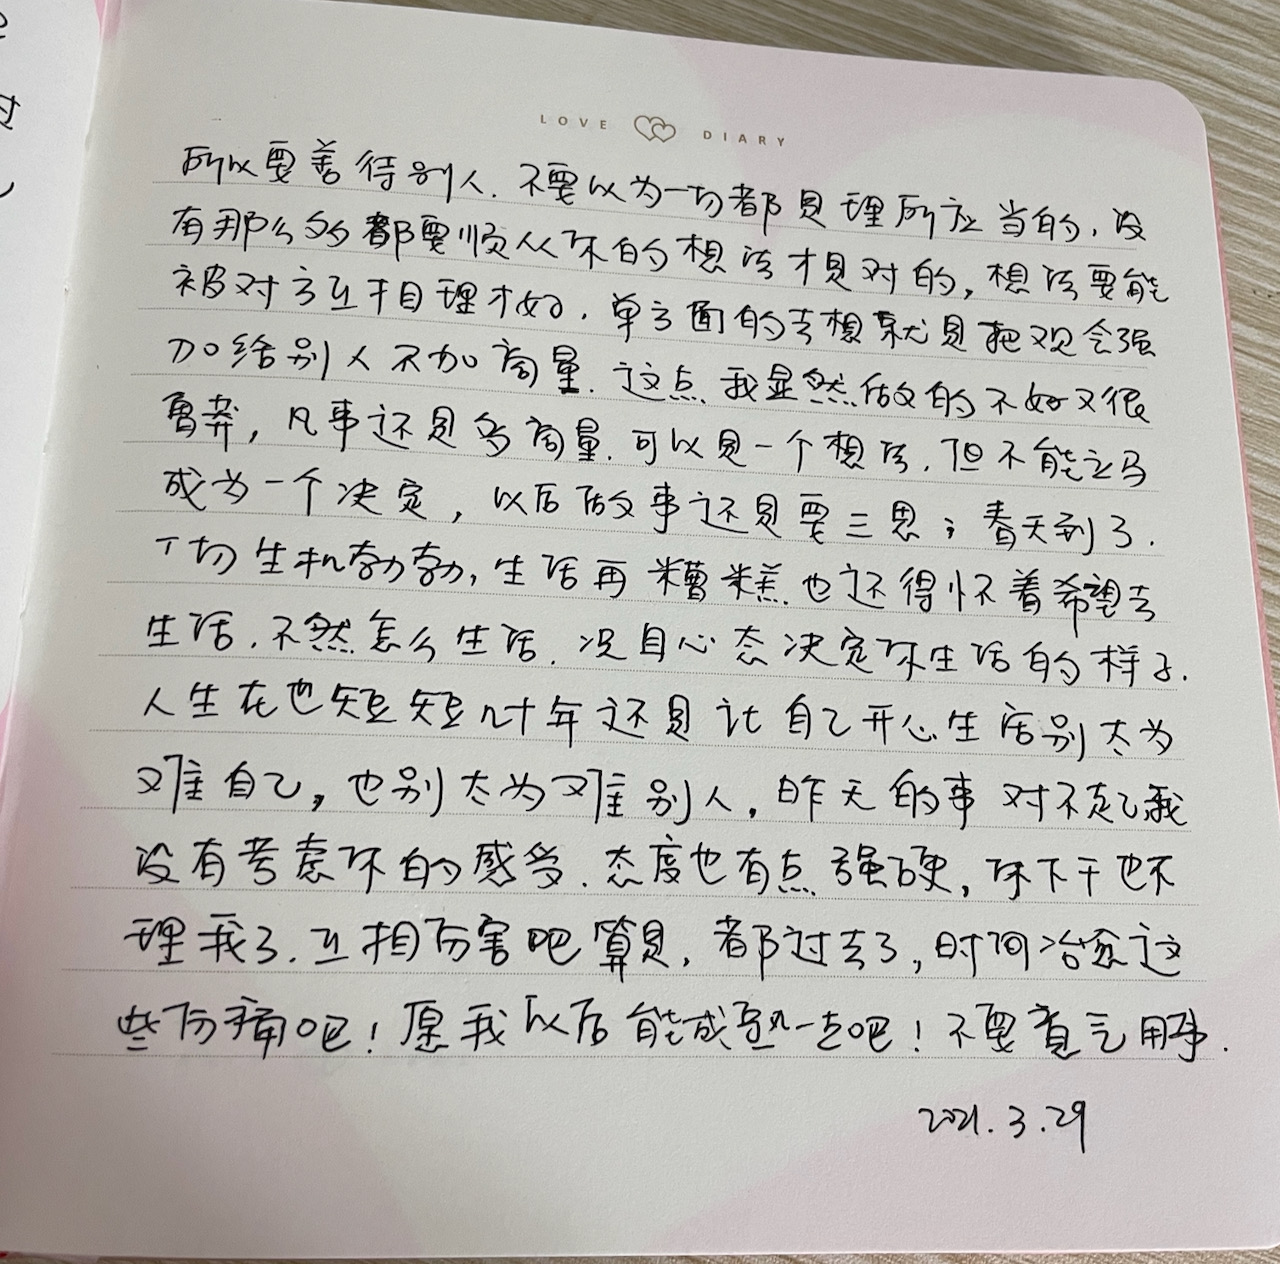 LOVE DIARY
所以要善待别人.不要以为一切都是理所应当的,没
有那么多的都要顺从你的想法才是对的,想法要能
被对方互相理才好.单方面的去想就是把观念强
加给别人不加商量.这点我显然做的不好又很
鲁莽,凡事还是多商量.可以是一个想法.但不能立马
成为一个决定,以后做事还是要三思;春天到了.
一切生机勃勃,生活再糟糕也还得怀着希望去
生活.不然怎么生活.况且心态决定你生活的样子.
人生在也短短几十年还是让自己开心生活别太为
难自己,也别太为难别人,昨天的事对不起我
没有考虑你的感受.态度也有点强硬,你下午也不
理我了.互相伤害吧算是,都过去了,时间治愈这
些伤痛吧!愿我以后能成熟一点吧!不要意气用事.
2021.3.29
过